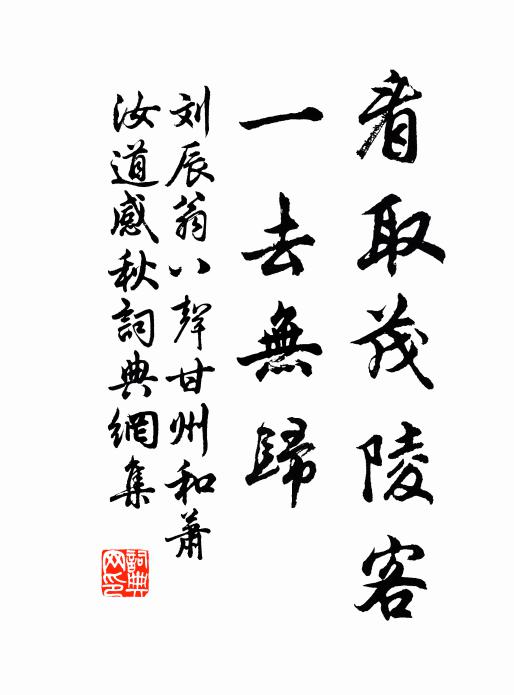 看取茂陵客
一去無歸
刘辰翁八聲甘州和蕭
汝道感秋詞典網集
詞典
网印